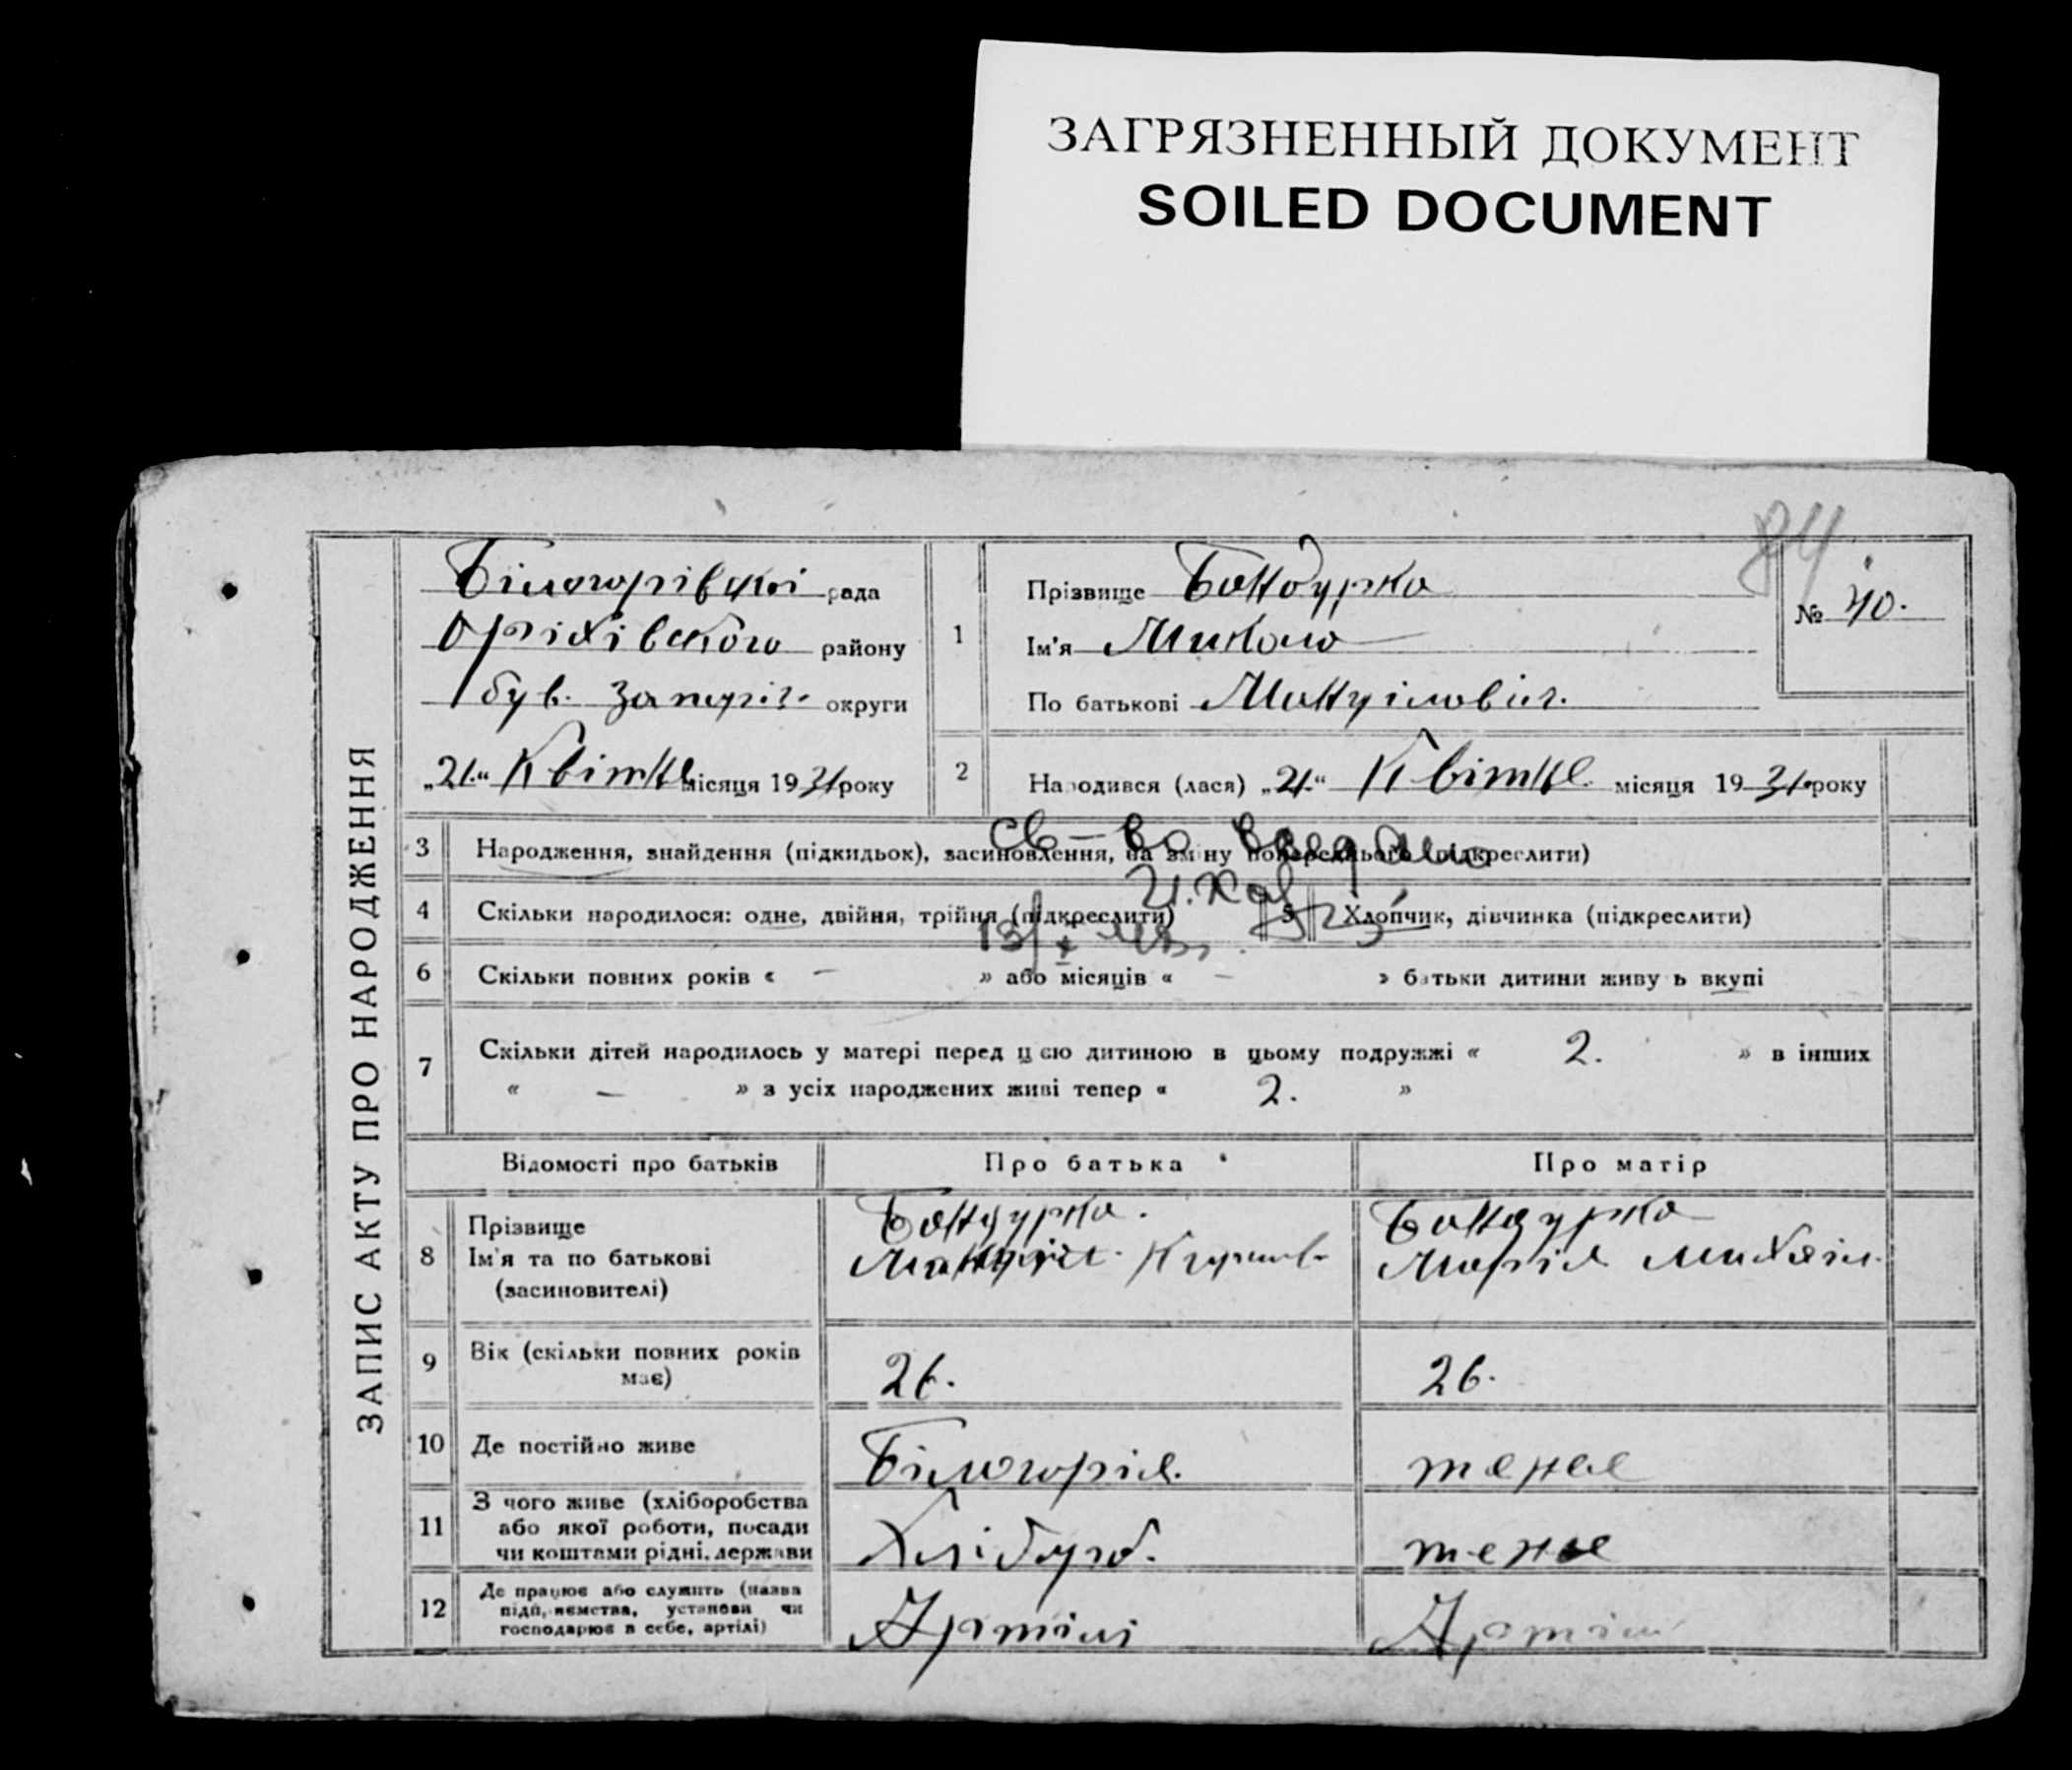 ЗАГРЯЗНЕННЫЙ ДОКУМЕНТ
SOILED DOCUMENT
84
ЗАПИС АКТУ ПРО НАРОДЖЕННЯ
Білогорівської рада
Оріхівського району
був. Запоріз. округи
„21“ Квітня місяця 1931 року
1
Прізвище Бондурко
Ім'я Микола
По батькові Мануілович.
№ 40.
2 Народився (лася) „21“ Квітня місяця 1931 року
св-во
3 Народження, знайдення (підкидьок), засиновлення, на зміну попереднього (підкреслити)
4 Скільки народилося: одне, двійня, трійня (підкреслити) 5 Хлопчик, дівчинка (підкреслити)
6 Скільки повних років « — » або місяців « — » батьки дитини живуть вкупі
7 Скільки дітей народилось у матері перед цією дитиною в цьому подружжі « 2. » в інших
« — » з усіх народжених живі тепер « 2. »
Відомості про батьків Про батька Про матір
8 Прізвище
Ім'я та по батькові
(засиновителі)
Бондурко.
Мануіл.
Бондурко
Марія Михаіл.
9 Вік (скільки повних років має) 26. 26.
10 Де постійно живе Білогорія. тене
11 З чого живе (хліборобства
або якої роботи, посади
чи коштами рідні, держави
Хлібороб. тене
12 Де працює або служить (назва
підприємства, установи чи
господарює в себе, артілі)
Артілі Артілі